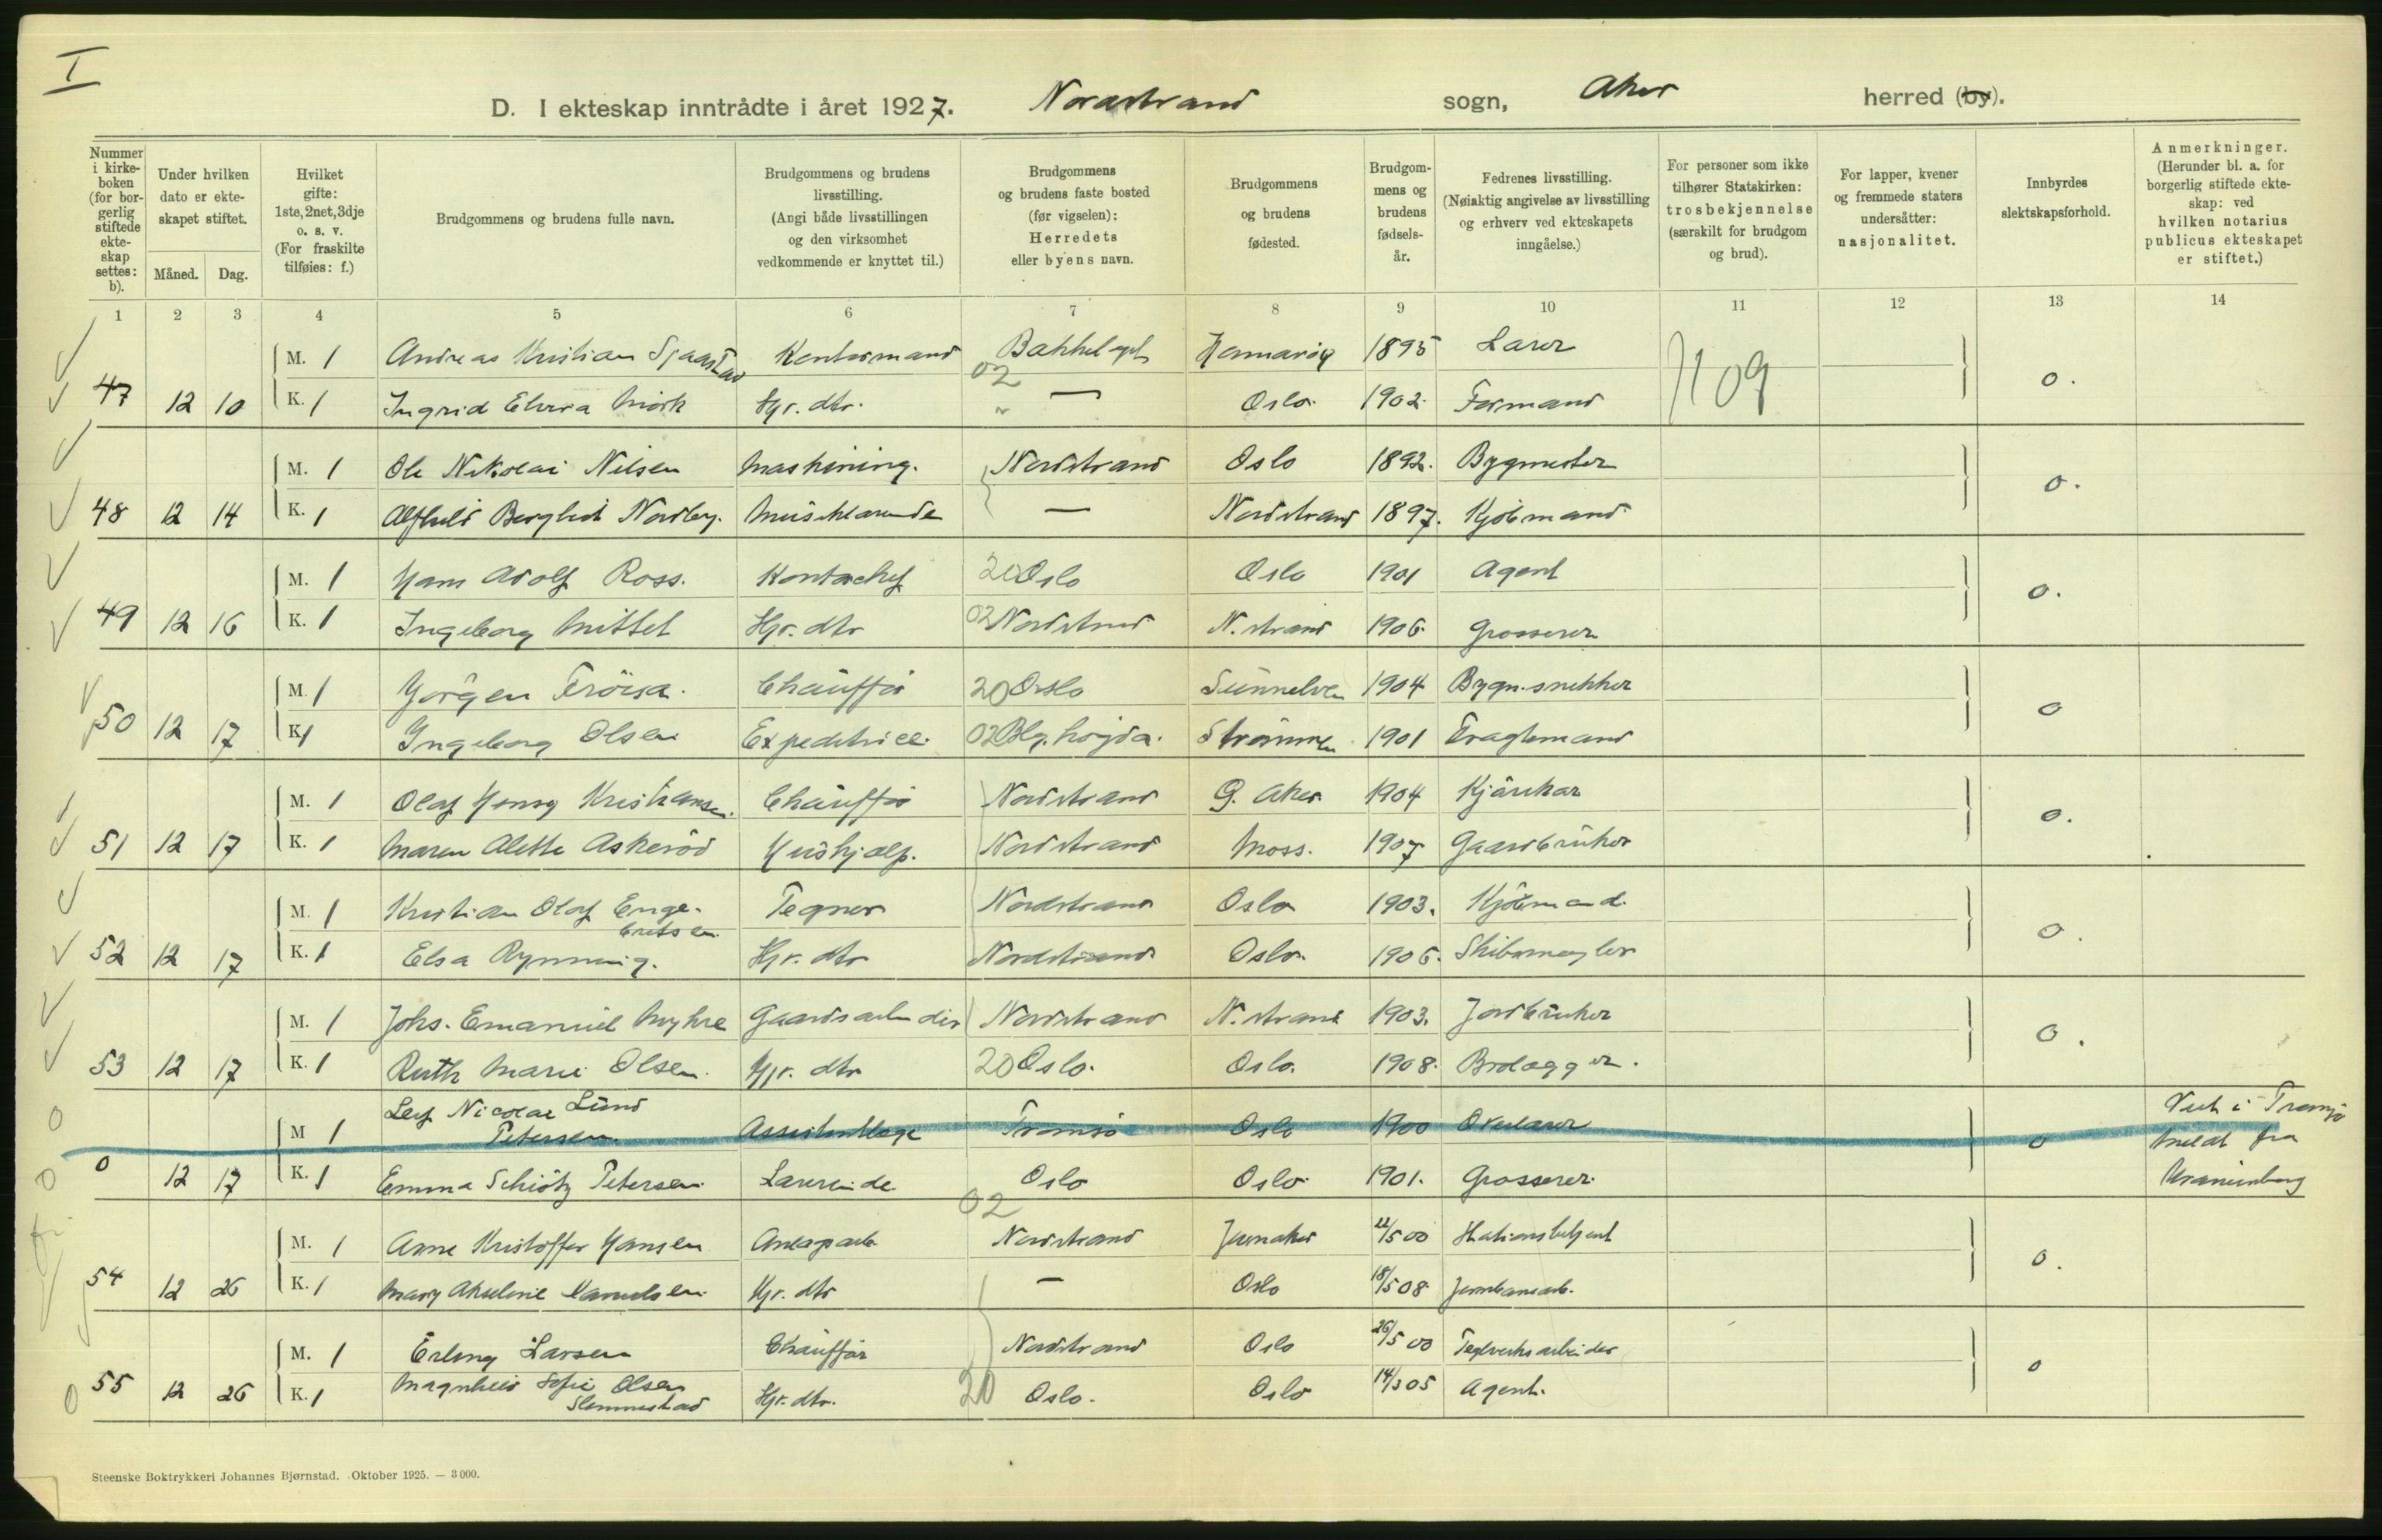 I
D. I ekteskap inntrådte i året 1927. Nordstrand sogn, Aker herred (by).
Nummer i kirkeboken (for borgerlig stiftede ekteskap settes: b).
Under hvilken dato er ekteskapet stiftet.
Måned. Dag.
Hvilket gifte: 1ste, 2net, 3dje o. s. v. (For fraskilte tilføies: f.)
Brudgommens og brudens fulle navn.
Brudgommens og brudens livsstilling. (Angi både livsstillingen og den virksomhet vedkommende er knyttet til.)
Brudgommens og brudens faste bosted (før vigselen): Herredets eller byens navn.
Brudgommens og brudens fødested.
Brudgommens og brudens fødselsår.
Fedrenes livsstilling. (Nøiaktig angivelse av livsstilling og erhverv ved ekteskapets inngåelse.)
For personer som ikke tilhører Statskirken: trosbekjennelse (særskilt for brudgom og brud).
For lapper, kvener og fremmede staters undersåtter: nasjonalitet.
Innbyrdes slektskapsforhold.
Anmerkninger. (Herunder bl. a. for borgerlig stiftede ekteskap: ved hvilken notarius publicus ekteskapet er stiftet.)
1 2 3 4 5 6 7 8 9 10 11 12 13 14
M. 1 Andreas Kristian Sjaastad Kontormand Bækkelaget 1895 Lærer
02 1109
47 12 10 K. 1 Ingrid Elvira Mørk Hjr. dtr. — Oslo. 1902. Formand 0.
M. 1 Ole Nikolai Nilsen Maskining. Nordstrand Oslo 1892. Bygmester
48 12 14 K. 1 Alfhild Bergliot Nordby. Musiklærerinde — Nordstrand 1897. Kjöbmand 0.
M. 1 Hans Adolf Ross. Kontorchef 20 Oslo Oslo 1901 Agent
49 12 16 K. 1 Ingeborg Mittet Hjr. dtr 02 Nordstrand N. strand 1906. Grosserer 0.
M. 1 Jörgen Fröisa. Chauffør 20 Oslo Sunnelven 1904 Bygn.snekker
50 12 17 K. 1 Ingeborg Olsen Expeditrice. 02 Blg. høgda. Strømmen 1901 Fragtemand 0
M. 1 Olaf Henry Kristiansen. Chauffør Nordstrand G. Aker 1904 Kjørekar
51 12 17 K. 1 Maren Alette Askerød Hushjælp. Nordstrand Moss. 1907 Gaardbruker 0.
M. 1 Kristian Olaf Engebretsen Tegner Nordstrand Oslo 1903. Kjöbmand.
52 12 17 K. 1 Elsa Rynning. Hjr. dtr Nordstrand Oslo. 1906. Skibsmægler 0.
M. 1 Johs. Emanuel Myhre Gaardsarbeider Nordstrand N. strand 1903. Jordbruker
53 12 17 K. 1 Ruth Marie Olsen. Hjr. dtr 20 Oslo. Oslo. 1908. Brolægger. 0.
M 1 Leif Nicolai Lund Petersen Assistentlæge Tromsø Oslo 1900 Overlærer 0 Viet i Tromsø
meldt fra
0 12 17 K. 1 Emma Schiøtz Petersen. Lærerinde. Oslo Oslo. 1901. Grosserer. Uranienborg
02
M. 1 Arne Kristoffer Hansen Anlægsarb. Nordstrand Jevnaker 22/5 00 Stationsbetjent
54 12 26 K. 1 Mary Akseline Hjr. dtr — Oslo 18/5 08 Jernbanearb. 0.
M. 1 Erling Larsen Chauffør Nordstrand Oslo 26/5 00 Teglverksarbeider
55 12 26 K. 1 Magnhild Sofie Olsen Slemmestad Hjr. dtr. 20 Oslo. Oslo 14/3 05 Agent. 0
Steenske Boktrykkeri Johannes Bjørnstad. Oktober 1925. — 3000.